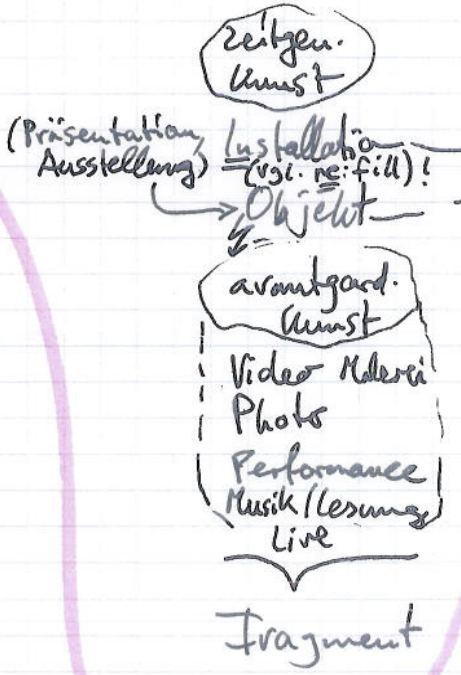 Zeitgen.
Kunst
(Präsentation, Installation
Ausstellung) (vgl. re:fill)!
Objekt
avantgard.
Kunst
Video Malerei
Photo
Performance
Musik/Lesung
Live
Fragment